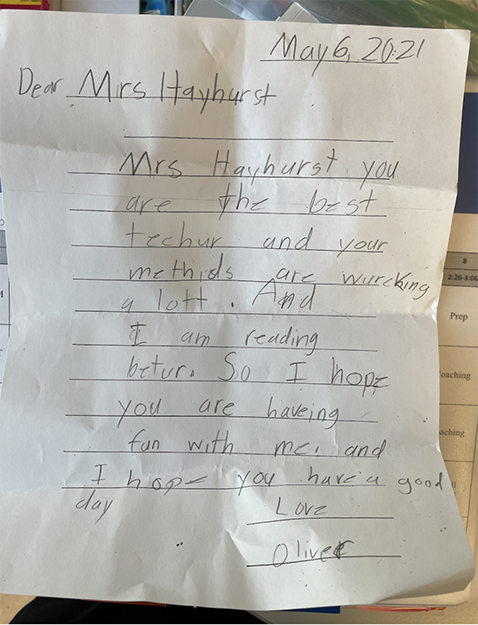 May 6, 2021
Dear Mrs Hayhurst
Mrs Hayhurst you
are the best
techur and your
methids are wurcking
a lott. And
I am reading
betur. So I hope
you are haveing
fun with me. and
I hope you have a good
day
Love
Oliver
8
2:26-3:06
Prep
oaching
aching